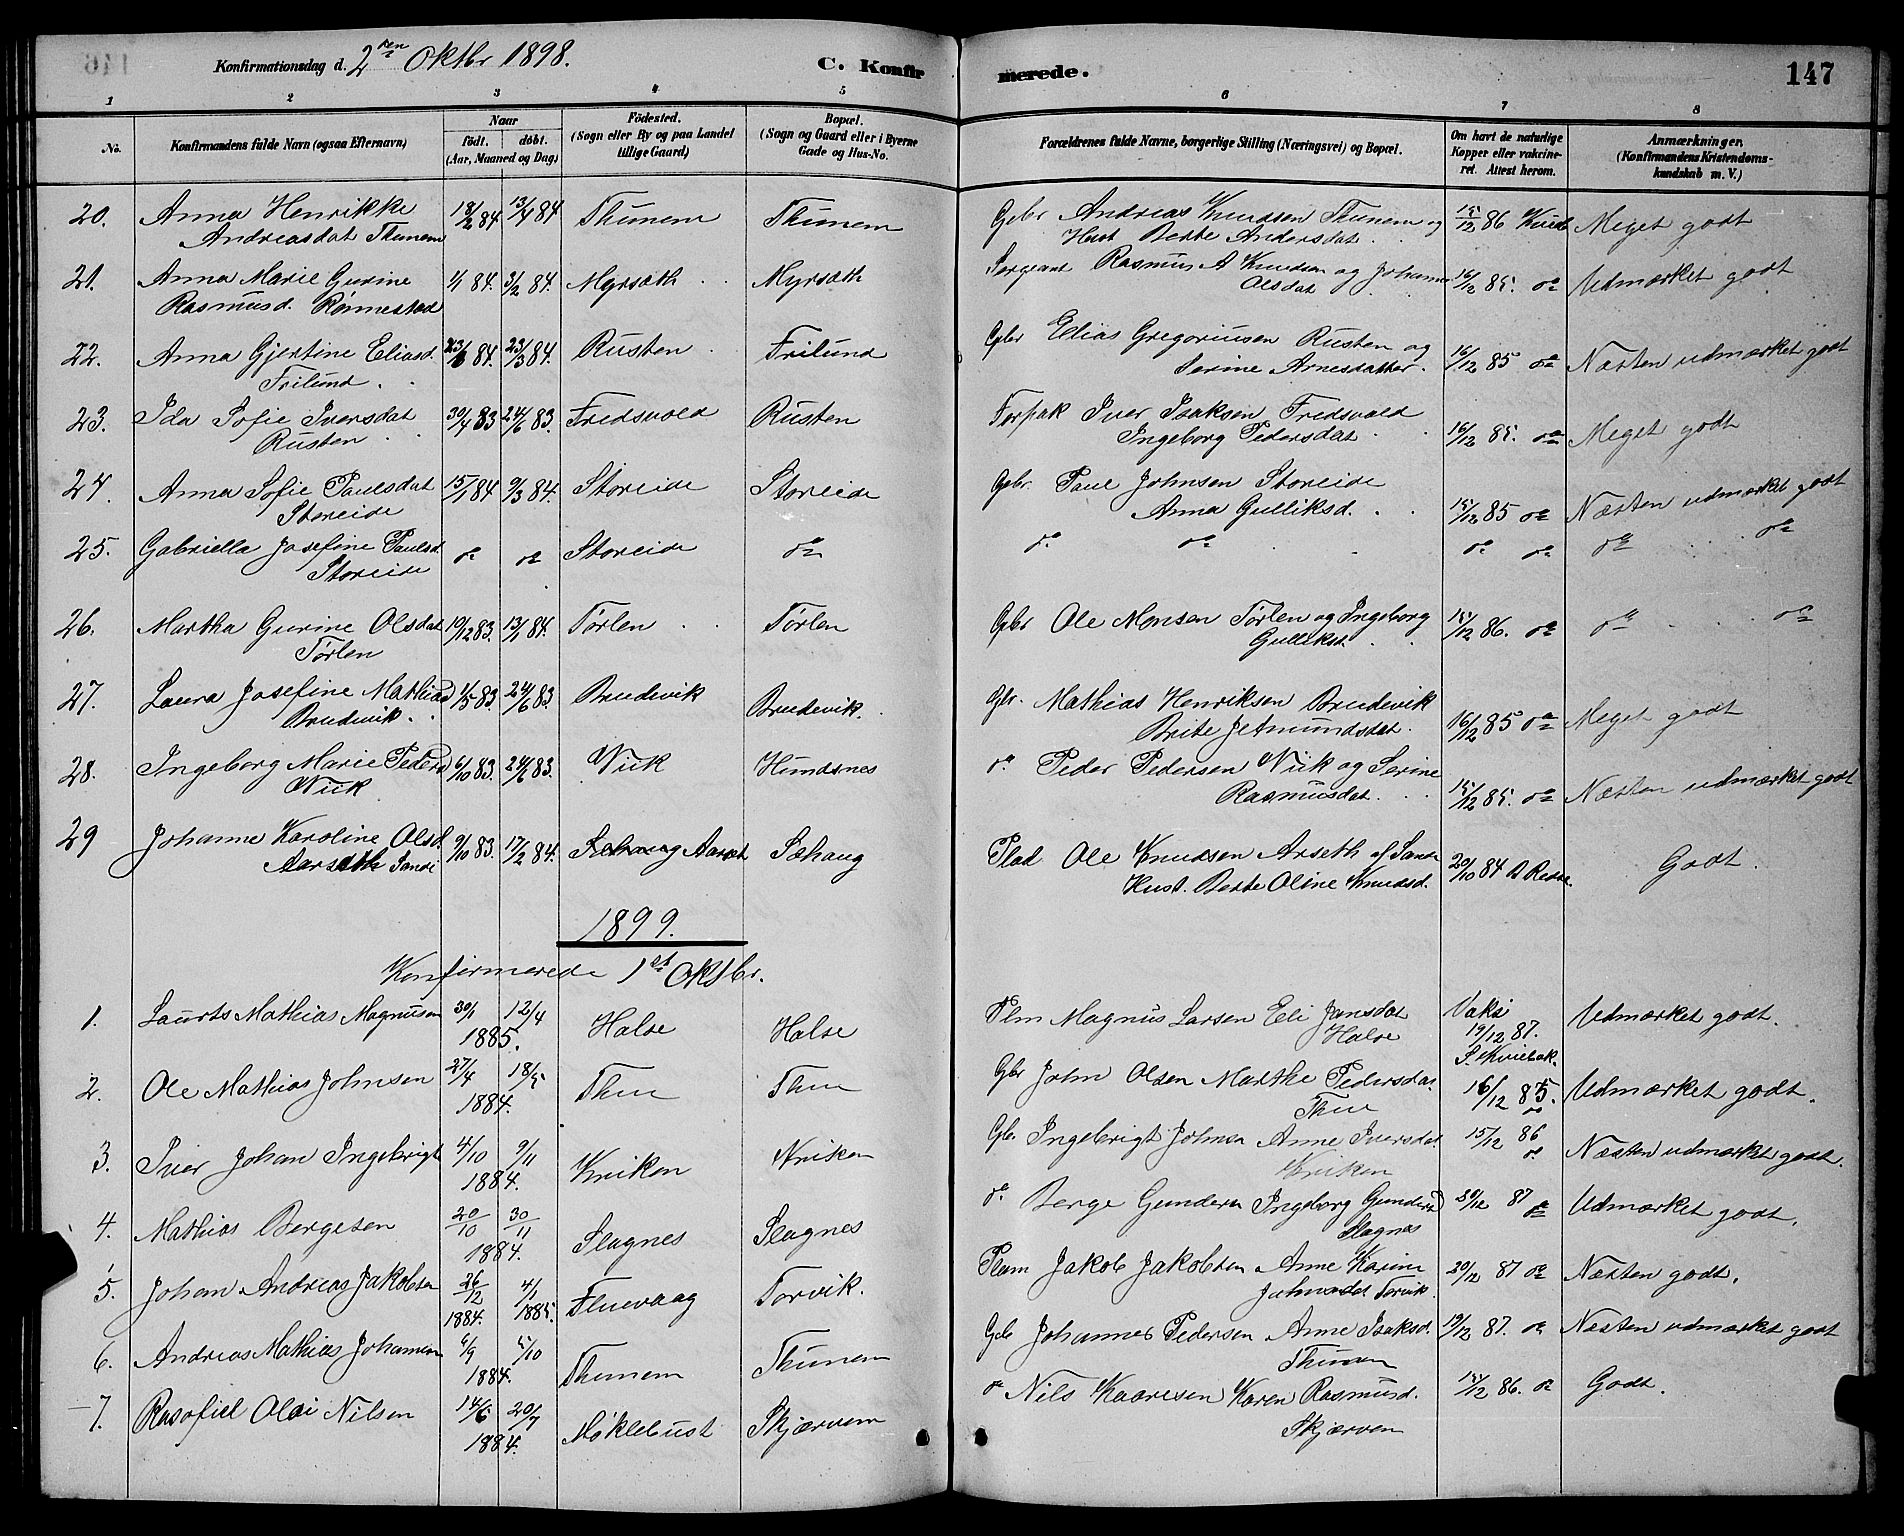 Konfirmationsdag d. 2den Oktbr 1898. C. Konfirmerede. 147
1 2 3 4 5 6 7 8
No. Konfirmandens fulde Navn (ogsaa Efternavn) Naar født. døbt. (Aar, Maaned og Dag) Fødested. (Sogn eller By og paa Landet tillige Gaard) Bopæl. (Sogn og Gaard eller i Byerne Gade og Hus-No. Forældrenes fulde Navne, borgerlige Stilling (Næringsvei) og Bopæl. Om havt de naturlige Kopper eller vakcineret. Attest herom. Anmærkninger. (Konfirmandens Kristendomskundskab m. V.)
20. Anna Henrikke 18/2 84 13/4 84 Thunem Thunem Gbr Andreas Knudsen Thunem og 15/12 86 Meget godt
Andreasdat Thunem Hust Berte Andersdat.
21. Anna Marie Gurine 1/1 84. 3/2 84. Myrsæth Myrsæth Sergeant Rasmus A Knudsen og Johanne 16/12 85. do Udmærket godt
Rasmusd. Rønnestad Olsdat
22. Anna Gjertine Eliasd. 84. 23/3 84. Rusten Frilund Gbr Elias Gregoriusen Rusten og 16/12 85 do Næsten udmærket godt
Frilund. Serine Arnesdatter.
23. Ida Sofie Iversdat 30/4 83 24/6 83. Fredsvold Rusten Forpak Iver Isaksen Fredsvold 16/12 85. do Meget godt
Rusten Ingeborg Pedersdat.
24. Anna Sofie Paulsdat 15/1 84 9/3 84. Storeide Storeide Gbr. Paul Johnsen Storeide 15/12 85 do Næsten udmærket godt
Storeide Anna Gulliksd.
25. Gabriella Josefine Paulsd. do do Storeide do do do do do do do
Storeide
26. Martha Gurine Olsdat 19/12 83. 13/1 84. Tørlen Tørlen Gbr Ole Monsen Tørlen og Ingeborg 15/12 86. do do do
Tørlen Gulliksd.
27. Laura Josefine Mathiasd 1/5 83. 24/6 83. Brudevik Brudevik. Gbr. Mathias Henriksen Brudevik 16/12 85 do Meget godt
Brudevik. Brite Jetmundsdat.
28. Ingeborg Marie Pedersd 6/10 83. 24/6 83. Viik Hundsnes do Peder Pedersen Viik og Serine 15/12 85. do Næsten udmærket godt
Viik Rasmusdat.
29 Johanne Karoline Olsd. 9/10 83. 17/2 84. Aarset Sæhaug Plad Ole Knudsen Arseth af Sande 20/10 84 Godt.
Aarseth Sande Hust. Berte Oline Knudsd.
1899.
Konfirmerede 1st Oktbr.
1. Laurts Mathias Magnusen 30/1 12/4 1885. Halse Halse Plm Magnus Larsen Eli Jansdat Halse Vaks 19/12 87. Udmærket godt.
2. Ole Mathias Johnsen 27/4 18/5 1884. Thue Thue Gbr John Olsen Marthe Pedersdat. Thue 16/12 85. do Udmærket godt.
3. Iver Johan Ingebrigt 4/10 9/11 1884. Kviken Kviken Gb. Ingebrigt Johnsen Anne Iversdat. Kviken 15/12 86 do Næsten udmærket godt.
4. Mathias Bergesen 20/10 30/11 1884. Slagnes Slagnes do Berge Gundersen Ingeborg Gundersd Slagnes 20/12 87 do Udmærket godt.
5. Johan Andreas Jakobsen 26/12 1884. 4/1 1885. Fluevaag Torvik. Plam Jakob Jakobsen Anne Karine Torvik. 20/12 87 do Næsten godt.
6. Andreas Mathias Johannesen 6/9 5/10 1884. Thunem Thunem Gb Johannes Pedersen Anne Isaksd. Thunem 19/12 87. do Næsten udmærket godt
7. Rasofiel Olai Nilsen 14/6 20/7 1884. Møklebust Skjærvem do Nils Kaaresen Karen Rasmusd. Skjærven 15/12 86. do Godt.